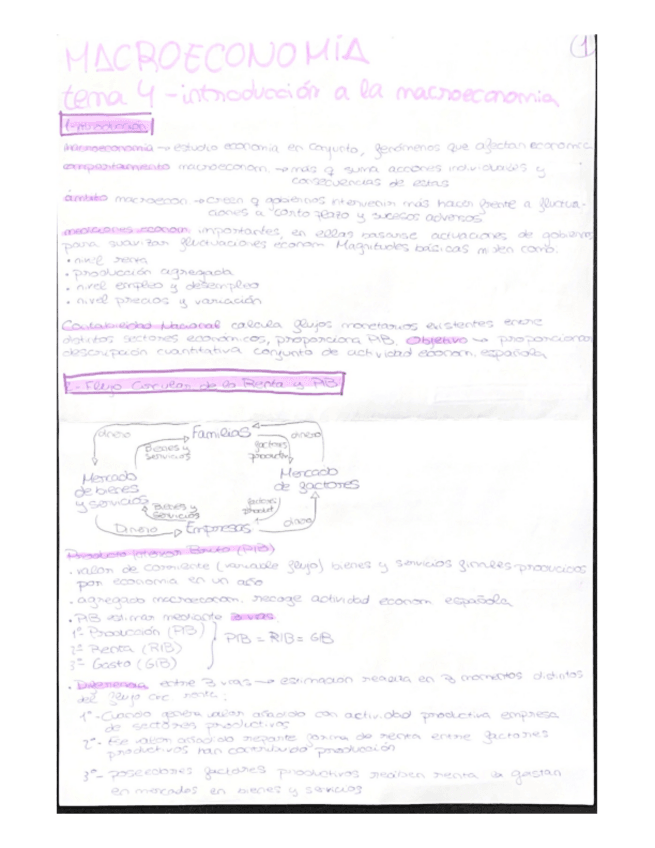 MACROECONOMÍA
1
tema 4 - introducción a la macroeconomia
1- introducción
Macroeconomia → estudio economia en conjunto, fenómenos que afectan economic
comportamiento macroeconom. → más q suma acciones individuales y
consecuencias de estas
ámbito macroecon → creen q gobiernos intervenir más hacer frente a fluctua-
ciones a corto plazo y sucesos adversos
mediciones econom importantes, en ellas basarse actuaciones de gobierno
para suavizar fluctuaciones econom. Magnitudes básicas miden como:
• nivel renta
• producción agregada
• nivel empleo y desempleo
• nivel precios y variación
Contabilidad Nacional calcula flujos monetarios existentes entre
distintos sectores económicos, proporciona PIB. Objetivo → proporcionar
descripción cuantitativa conjunto de actividad econom. española
2- Flujo Circular de la Renta y PIB
dinero Familias dinero
Bienes y servicios
factores product
Mercado de bienes y servicios
Mercado de factores
Bienes y servicios
factores product
Dinero Empresas dinero
Producto Interior Bruto (PIB)
• valor de corriente (variable flujo) bienes y servicios finales producidos
por economia en un año
• agregado macroeconom. recoge actividad econom española
• PIB estimar mediante 3 vias
1ª Producción (PIB)
2ª Renta (RIB)
3ª Gasto (GIB)
PIB = RIB = GIB
• Diferencia entre 3 vias → estimación realiza en 3 momentos distintos
del flujo circ renta:
1º- Cuando genera valor añadido con actividad productiva empresa
de sectores productivos
2º- Ese valor añadido reparte forma de renta entre factores
productivos han contribuido producción
3º- poseedores factores productivos reciben renta la gastan
en mercados en bienes y servicios